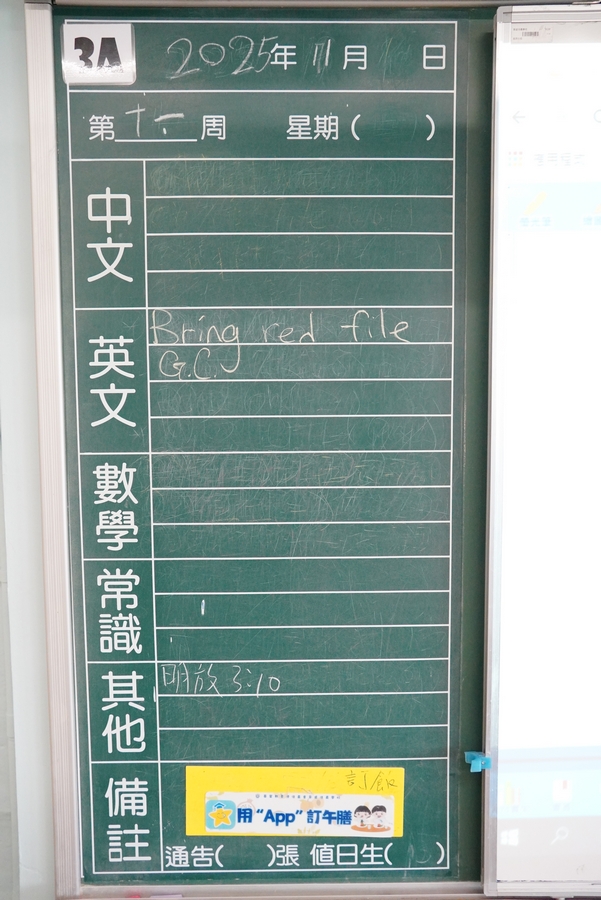 3A 2025年11月 日
第十一周 星期( )
中文
英文
Bring red file
G.C.
數學
常識
其他
明放3:10
備註
訂飯
用“App”訂午膳
通告( )張 值日生( )